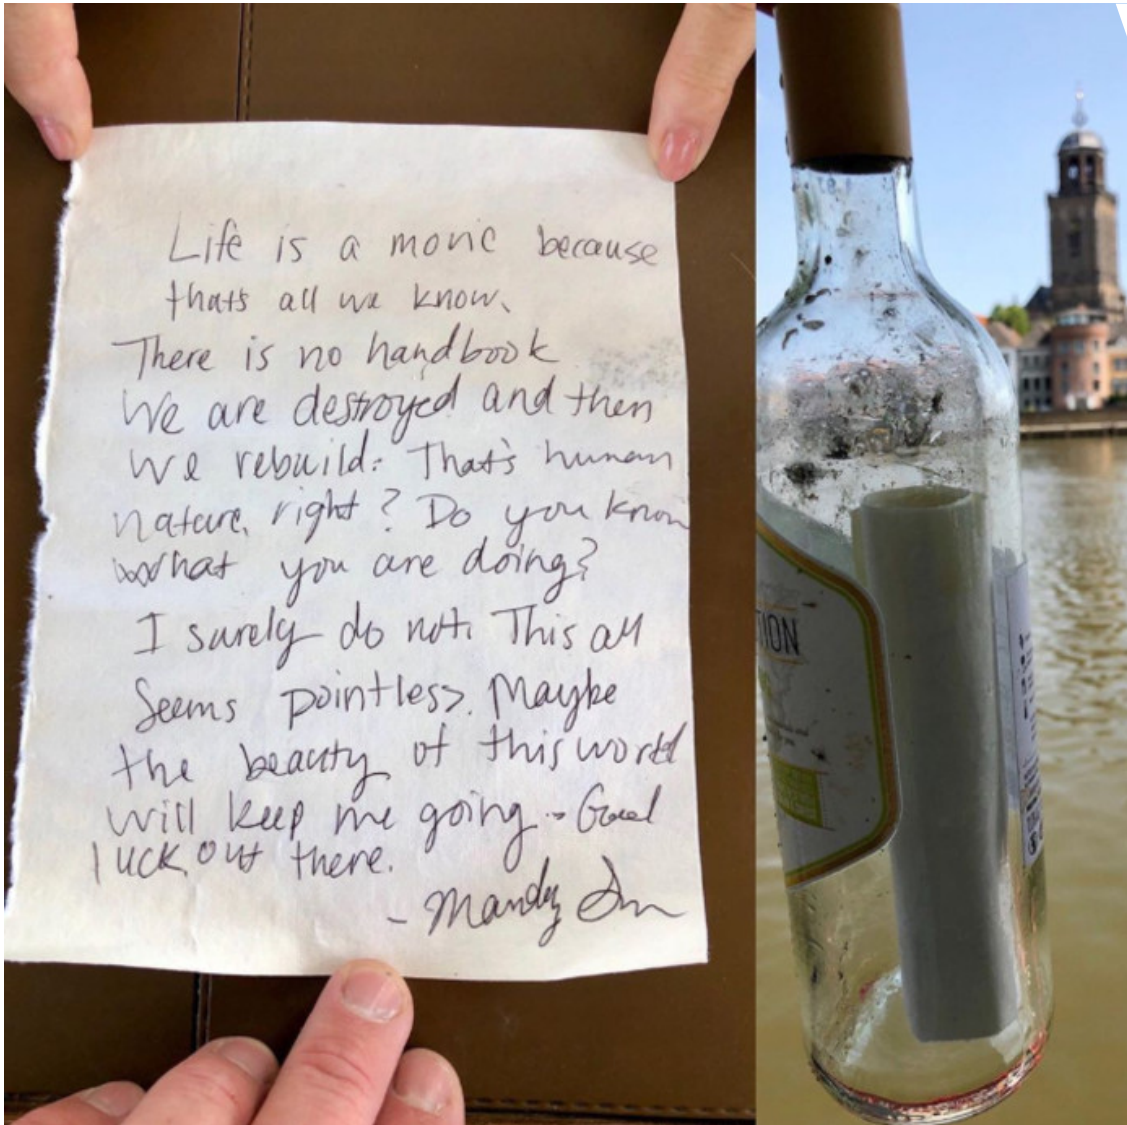 Life is a movie because
thats all we know.
There is no handbook
We are destroyed and then
we rebuild. That's human
nature, right? Do you know
what you are doing?
I surely do not. This all
Seems pointless. Maybe
the beauty of this world
will keep me going. Good
luck out there.
- Mandy
TION